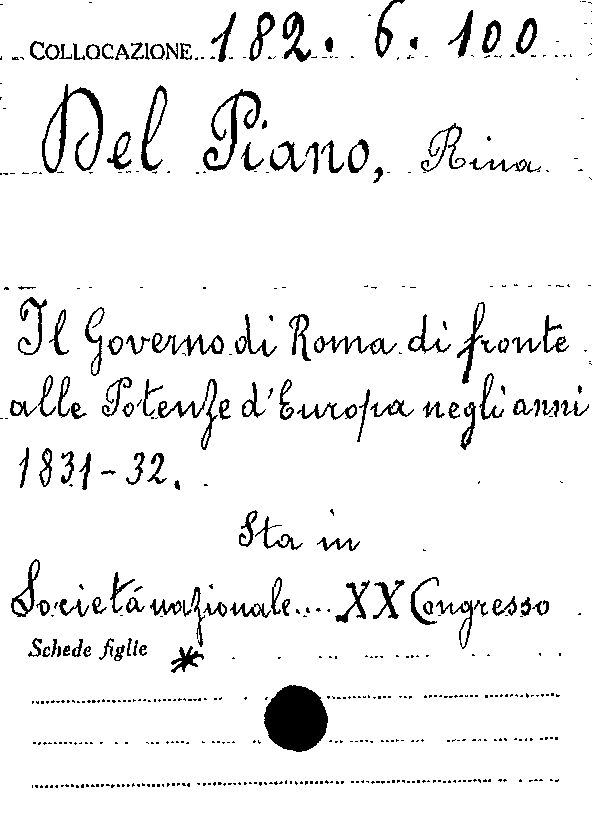 COLLOCAZIONE 182.6.100
Del Piano, Rina
Il Governo di Roma di fronte
alle Potenze d'Europa negli anni
1831-32.
Sta in
Societá nazionale.... XX Congresso
Schede figlie *